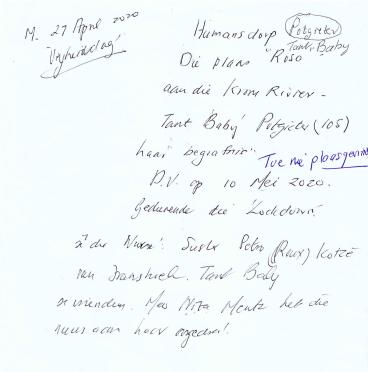 M. 27 April 2020
'Vryheidsdag'
Humansdorp Potgieter
Tant Baby
Die plaas "Roso
aan die Krom Rivier -
Tant 'Baby' Potgieter (105)
haar begrafnis
Tuе nie plaasgevind
D.V. op 10 Mei 2020.
Gedurende die 'Lockdown'.
'n du Nurse': Suster Petro (Roux) Kotzé
van Tant Baby
se vriendin. Mev Nita Mentz het die
nuus aan haar